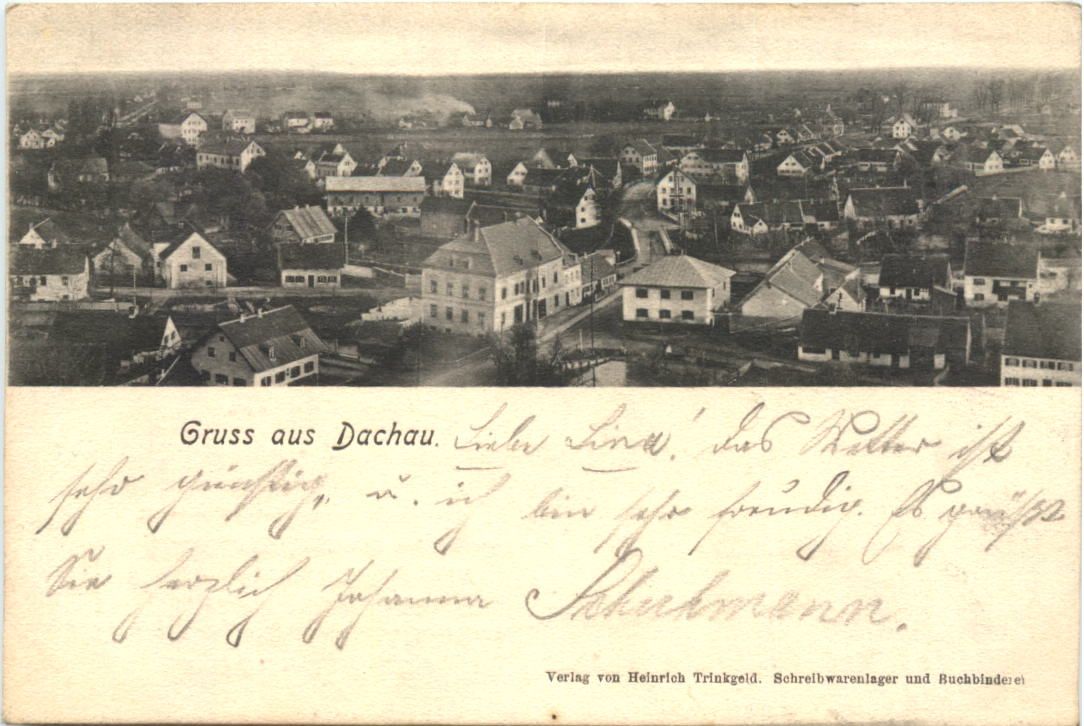 Gruss aus Dachau. Liebe Lina! das Wetter ist
sehr günstig, u. ich bin sehr freudig. Es grüßt
Sie herzlich Johanna
Verlag von Heinrich Trinkgeld. Schreibwarenlager und Buchbinderei